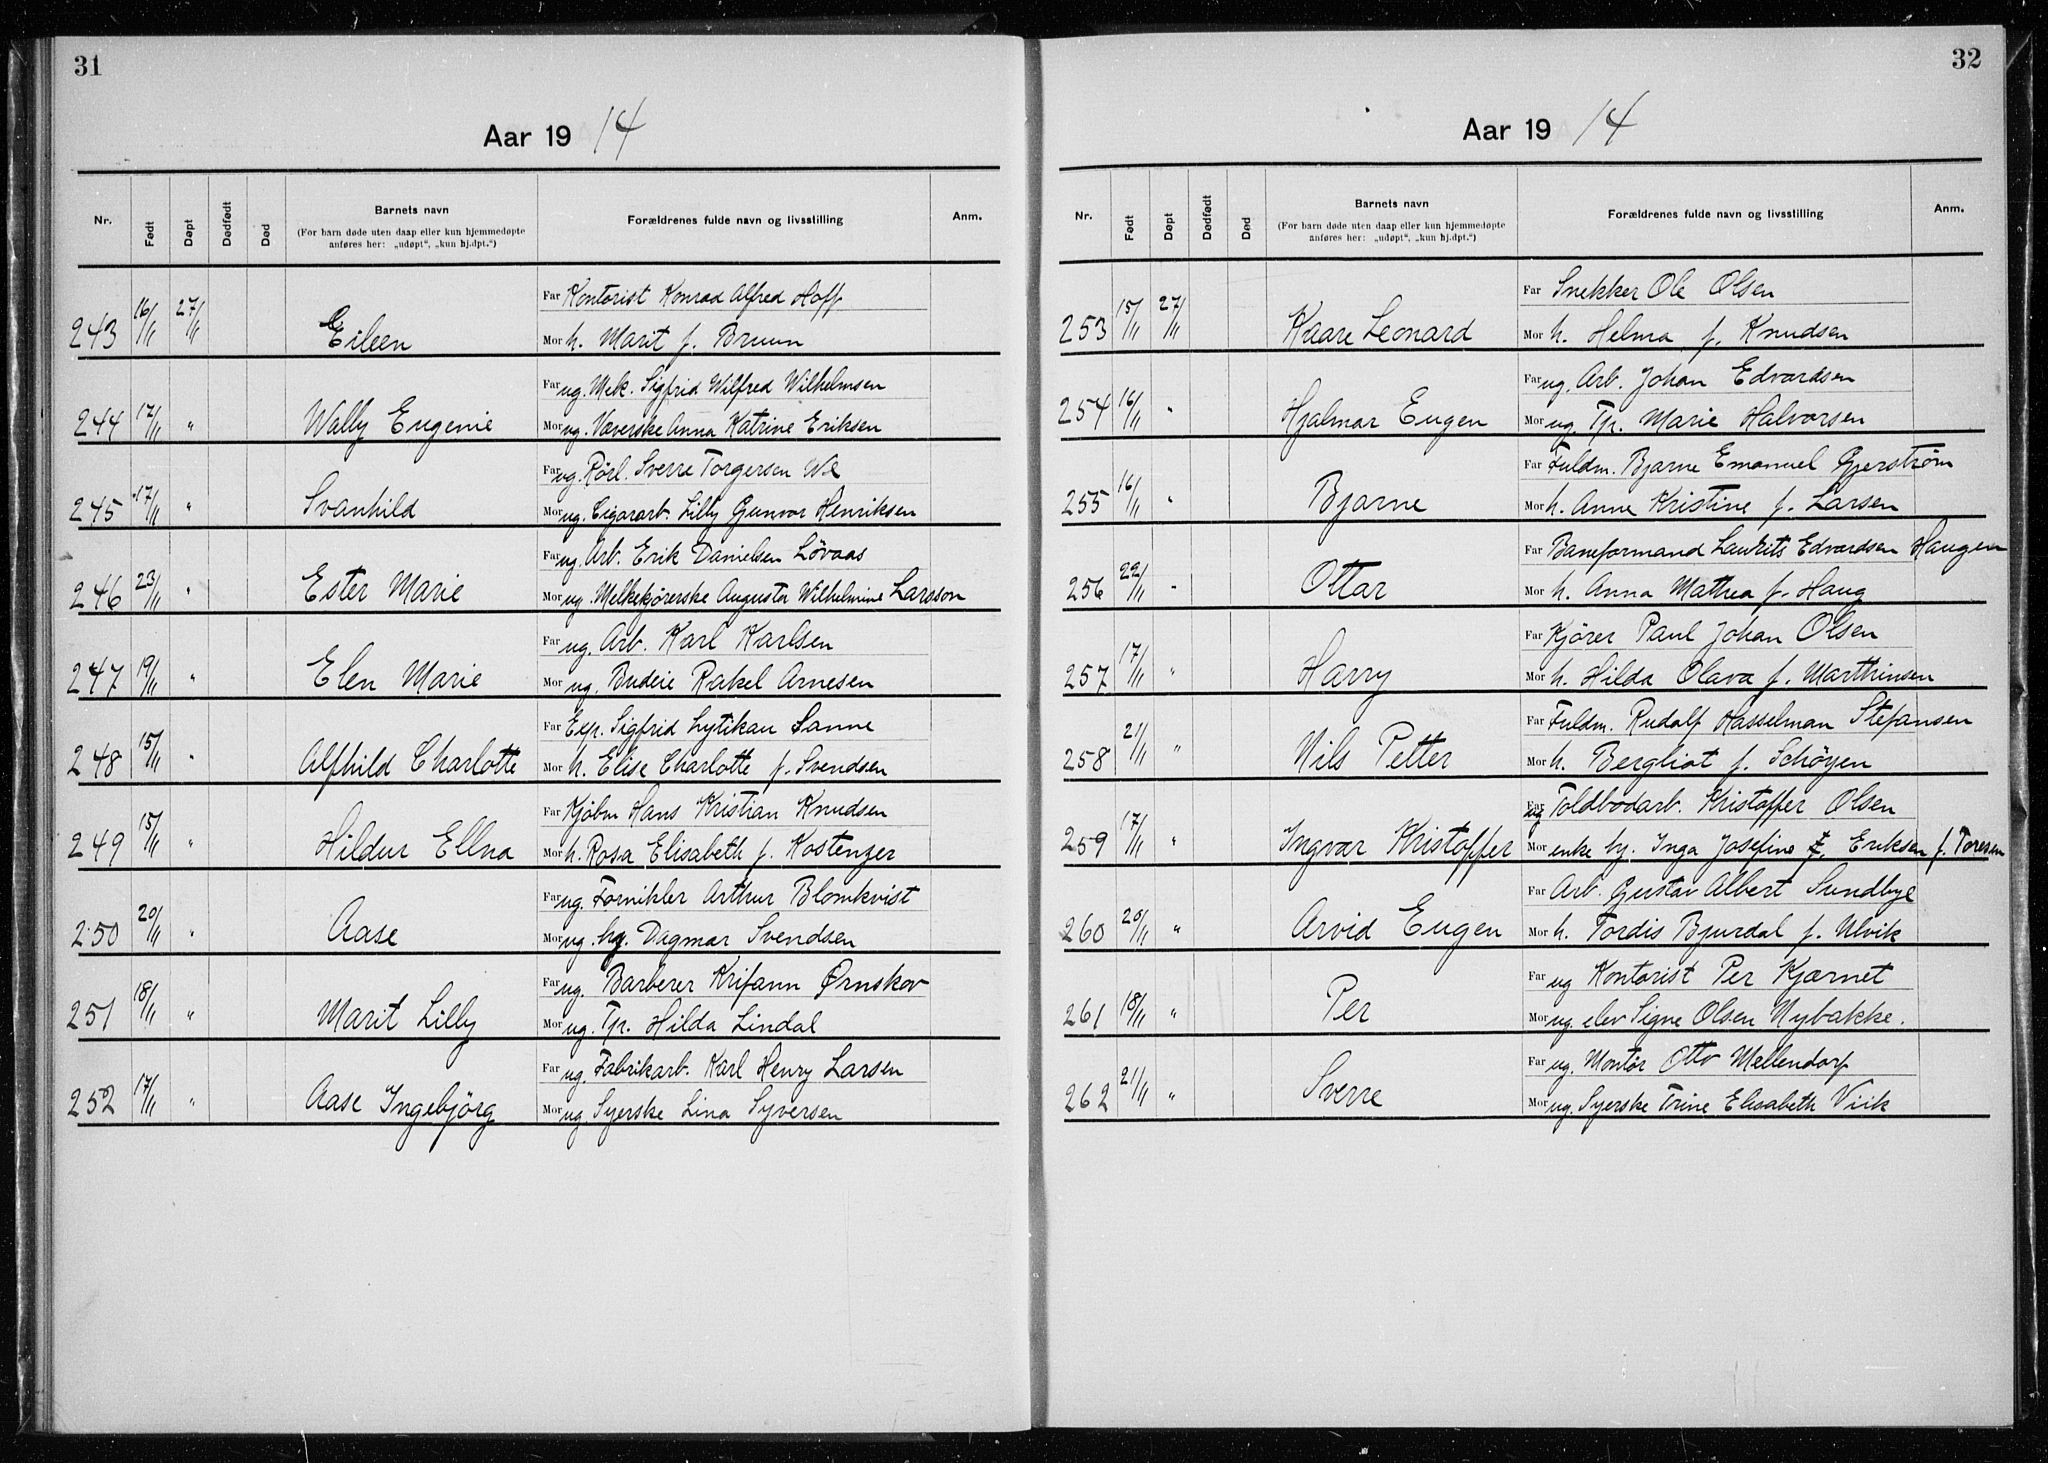 31
Aar 19 14
Nr. Født Døpt Dødfødt Død Barnets navn (For barn døde uten daap eller kun hjemmedøpte anføres her: „udøpt“, „kun hj.dpt.“) Forældrenes fulde navn og livsstilling Anm.
Far Kontorist Konrad Alfred Hoff
243 16/11 27/11 Eileen Mor h. Marit f. Bruun
Far ug. Mek. Sigfrid Wilfred Wilhelmsen
244 17/11 " Wally Eugenie Mor ug. Væverske Anna Katrine Eriksen
Far ug. Rørl. Sverre Torgersen
245 17/11 " Svanhild Mor ug. Cigararb. Lilly Gunvor Henriksen
Far ug. Arb. Erik Danielsen Løvaas
246 23/11 " Ester Marie Mor ug. Melkekjørerske Augusta Wilhelmine Larsson
Far ug. Arb. Karl Karlsen
247 19/11 " Elen Marie Mor ug. Budeie Rakel Arnesen
Far Exp. Sigfrid Lytikau Sanne
248 15/11 " Alfhild Charlotte Mor h. Elise Charlotte f. Svendsen
Far Kjøbm Hans Kristian Knudsen
249 15/11 " Hildur Ellna Mor h. Rosa Elisabeth f. Kostenzer
Far ug. Fornikler Arthur Blomkvist
250 20/11 " Aase Mor ug. hg. Dagmar Svendsen
Far ug. Barberer Krifann Ørnskov
251 18/11 " Marit Lilly Mor ug. Tp. Hilda Lindal
Far ug. Fabrikarb. Karl Henry Larsen
252 17/11 " Aase Ingebjörg Mor ug. Syerske Lina Syversen
32
Aar 19 14
Nr. Født Døpt Dødfødt Død Barnets navn (For barn døde uten daap eller kun hjemmedøpte anføres her: „udøpt“, „kun hj.dpt.“) Forældrenes fulde navn og livsstilling Anm.
Far Snekker Ole Olsen
253 15/11 27/11 Kaare Leonard Mor h. Helma f. Knudsen
Far ug. Arb. Johan Edvardsen
254 16/11 " Hjalmar Eugen Mor ug. Tp. Marie Halvorsen
Far Fuldm. Bjarne Emanuel Gjerstrøm
255 16/11 " Bjarne Mor h. Anne Kristine f. Larsen
Far Baneformand Laurits Edvardsen Haugen
256 22/11 " Ottar Mor h. Anna Mathea f. Haug
Far Kjører Paul Johan Olsen
257 17/11 " Harry Mor h. Hilda Olava f. Marthinsen
Far Fuldm. Rudolf Hasselman Stefansen
258 21/11 " Nils Petter Mor h. Bergliot f. Schöyen
Far ug Toldbodarb. Kristoffer Olsen
259 17/11 " Ingvar Kristoffer Mor enke hg. Inga Josefine f. Eriksen f. Toresen
Far Arb. Gustav Albert Sundbye
260 20/11 " Arvid Eugen Mor h. Tordis Bjurdal f. Ulvik
Far ug Kontorist Per Kjærnet
261 18/11 " Per Mor ug. elev Signe Olsen Nybakke.
Far ug. Montør Otto Mellendorf
262 21/11 " Sverre Mor ug. Syerske Trine Elisabeth Viik